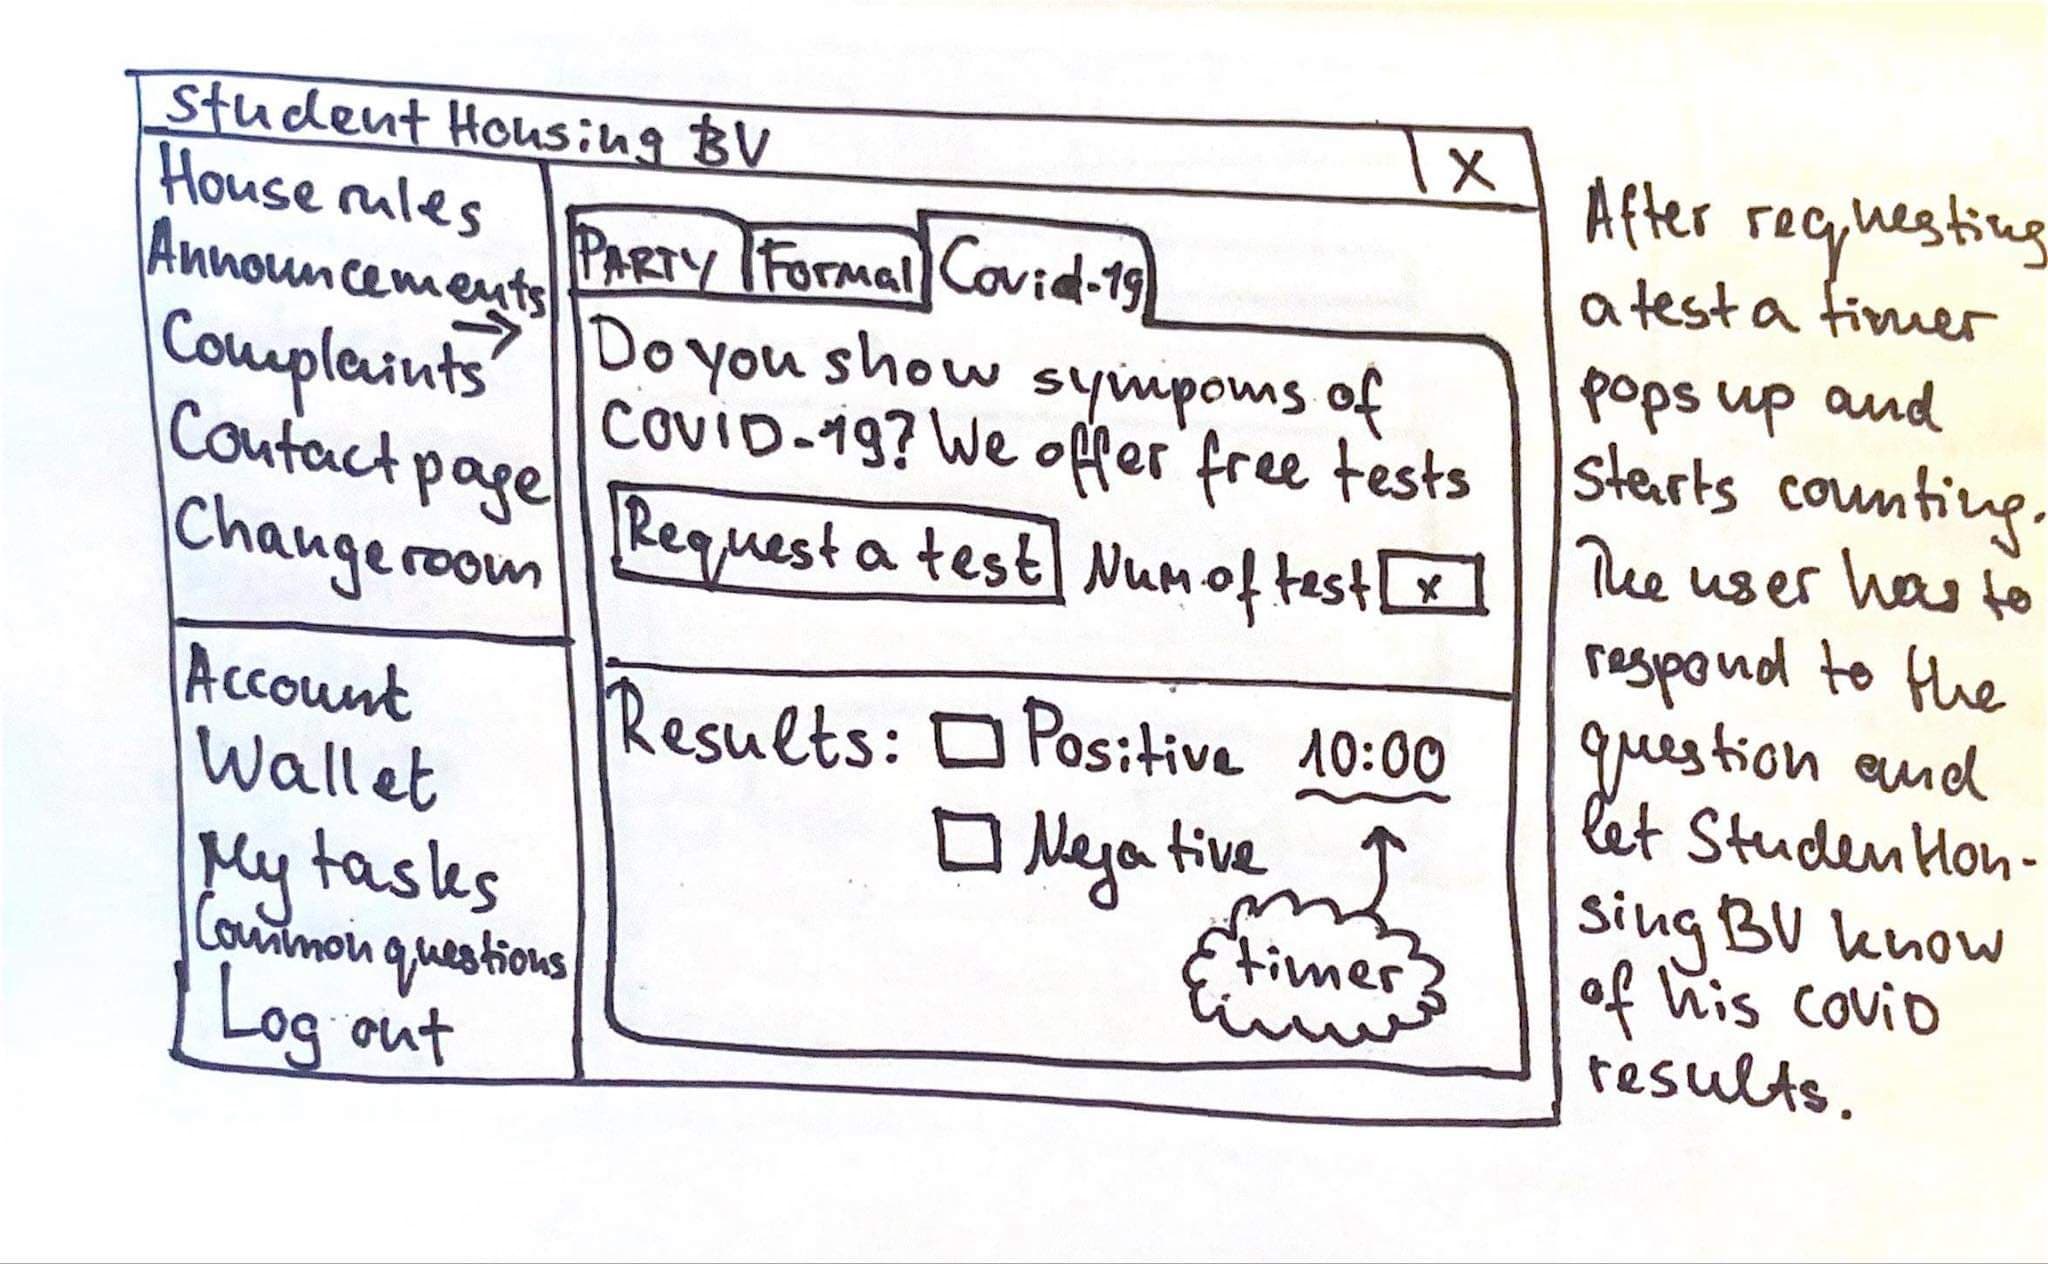 Student Housing BV
X
House rules
Announcements
Complaints →
Contact page
Change room
Account
Wallet
My tasks
Common questions
Log out
PARTY
Formal
Covid-19
Do you show sympoms of
COVID-19? We offer free tests
Request a test
Num of test
x
Results:
Positive
10:00
Negative
timer
After requesting
a test a timer
pops up and
starts counting.
The user has to
respond to the
question and
let StudentHou-
sing BV know
of his COVID
results.